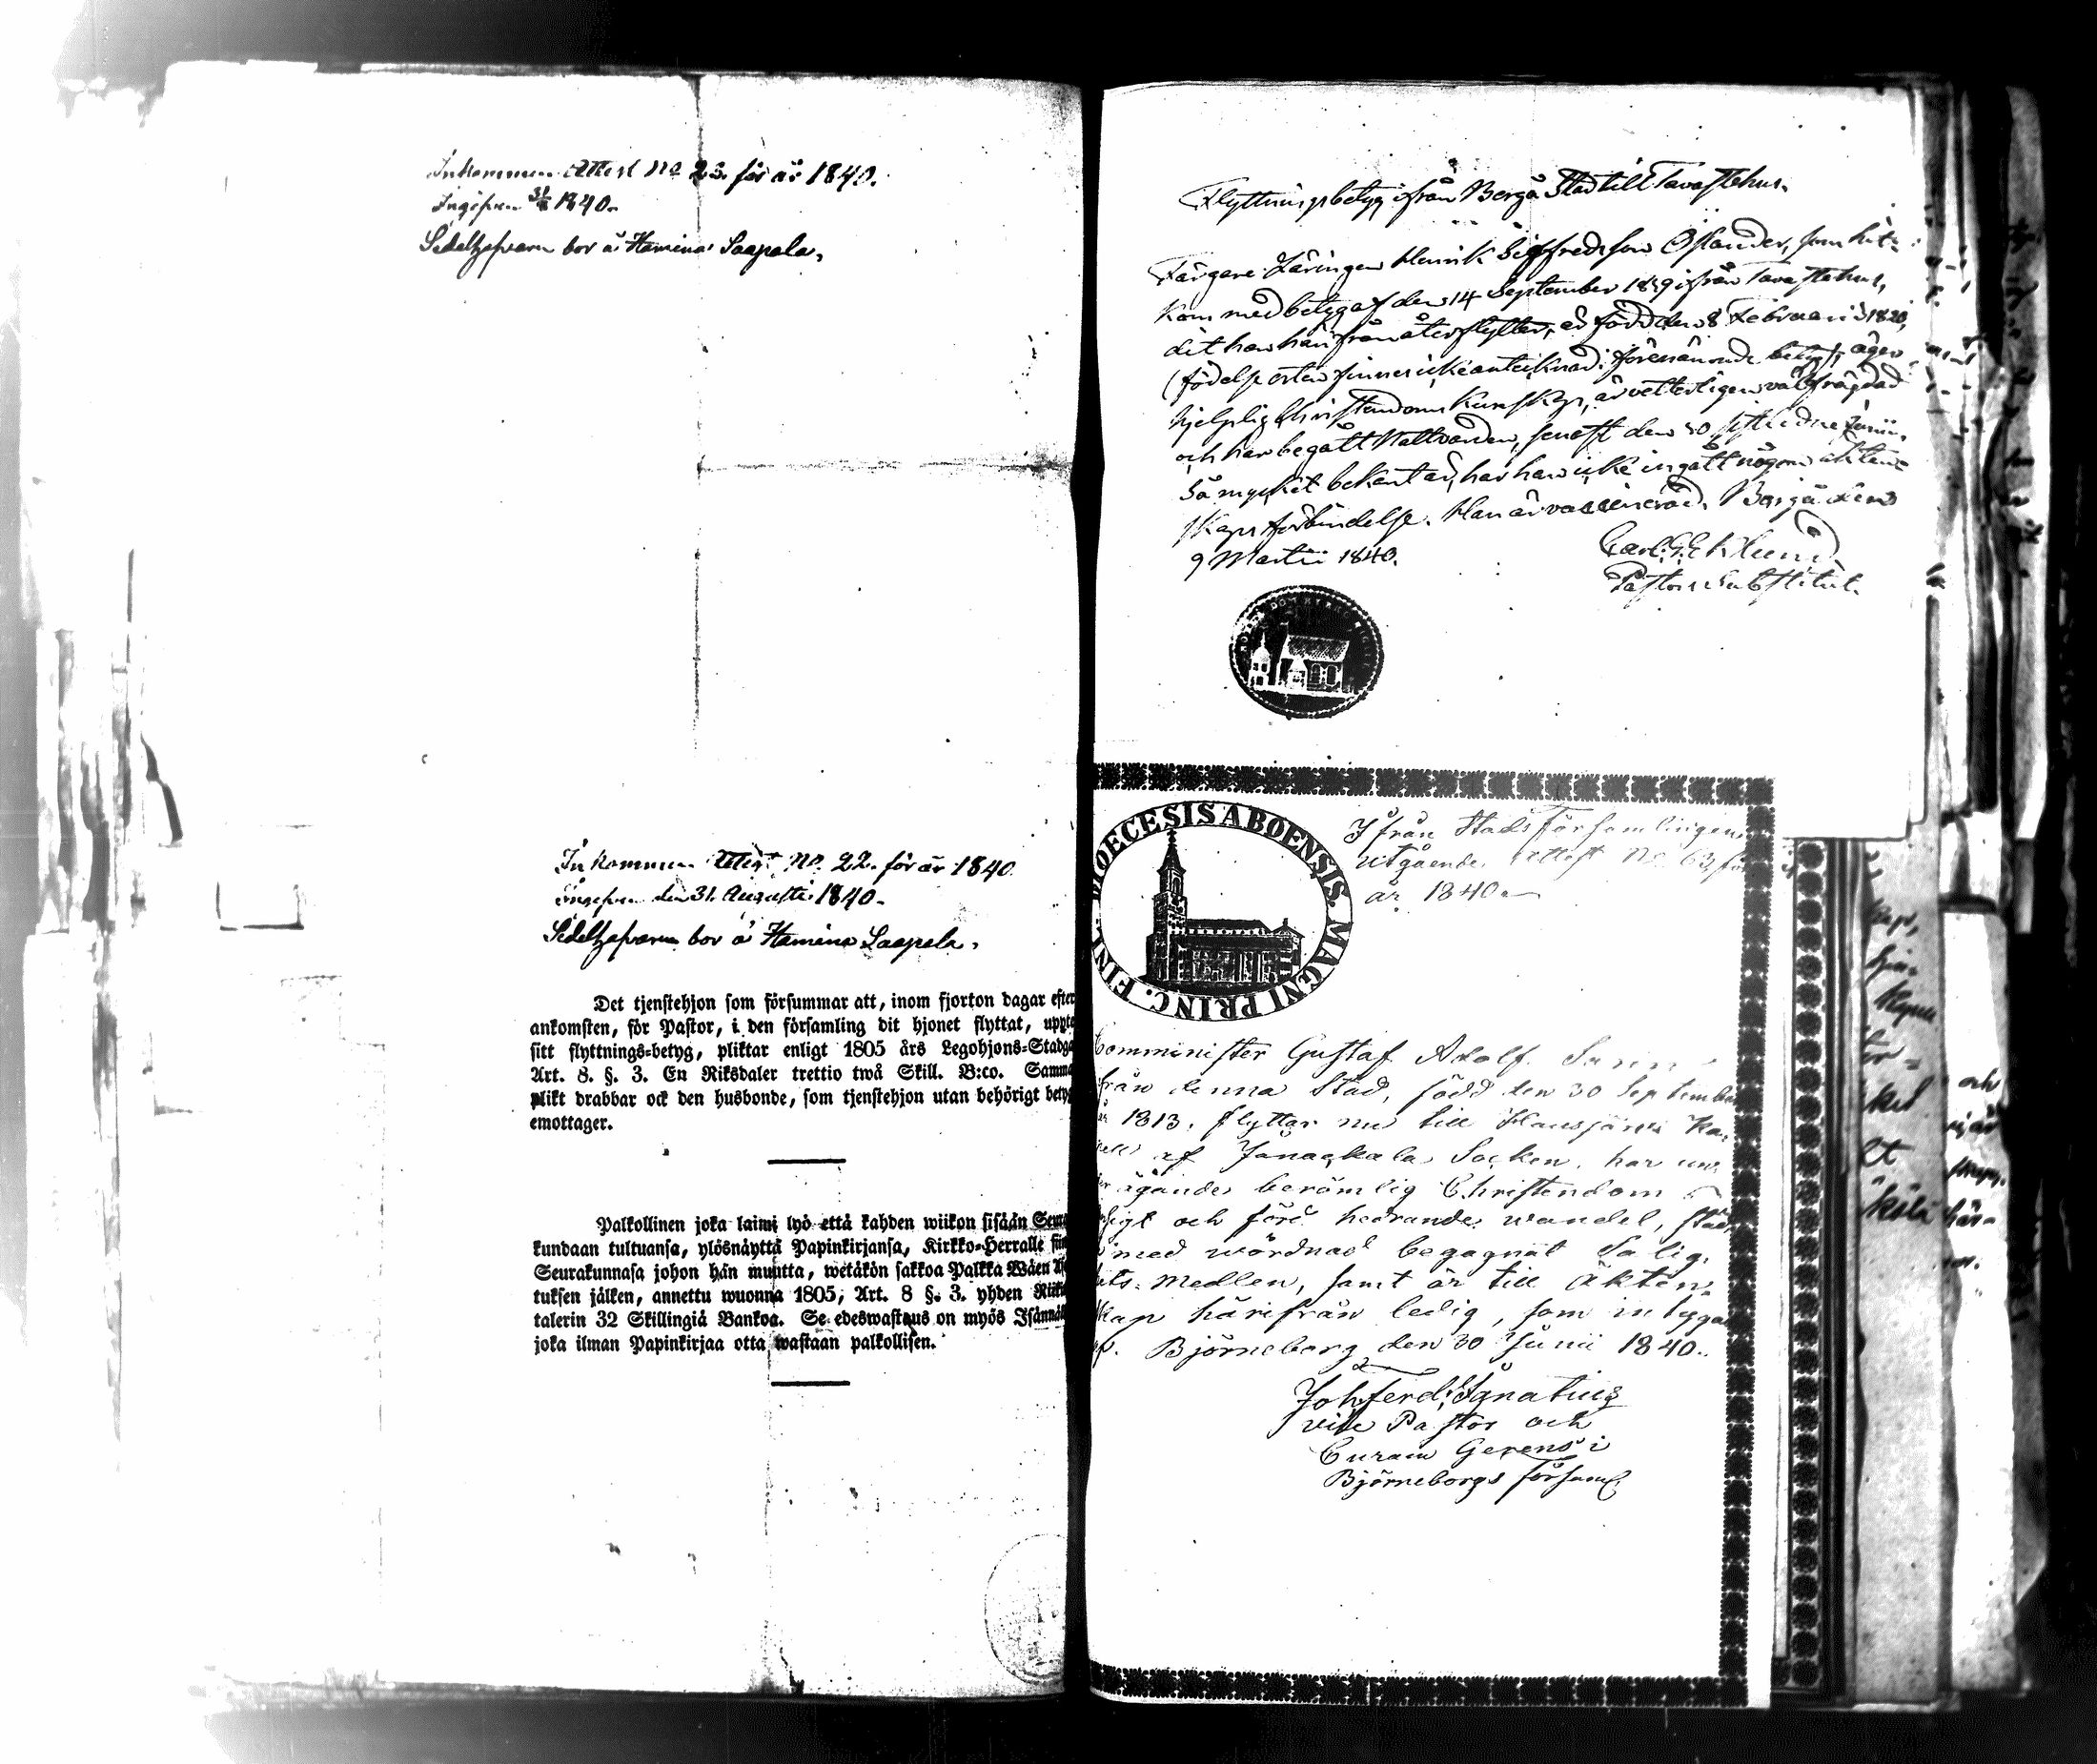 Inkommen Attest No 23. för år 1840.
Ingifven 31/8 1840.
Sedelhafvaren bor å Hamina Saapala.
Inkommen Attest No. 22. för år 1840
Ingifven den 31. Augusti 1840.
Sedelhafvaren bor å Hamina Saapala.
Det tjenstehjon som försummar att, inom fjorton dagar efter
ankomsten, för Pastor, i den församling dit hjonet flyttat, uppte
sitt flyttnings-betyg, pliktar enligt 1805 års Legohjons-Stadga
Art. 8. §. 3. En Riksdaler trettio twå Skill. B:co. Samma
plikt drabbar ock den husbonde, som tjenstehjon utan behörigt betyg
emottager.
Palkollinen joka laimi lyö että kahden wiikon sisään Seura
kundaan tultuansa, ylösnäyttä Papinkirjansa, Kirkko-Herralle siin
Seurakunnasa johon hän muutta, wetäkön sakkoa Palkka Wäen
tuksen jälken, annettu wuonna 1805; Art. 8 §. 3. yhden Riiki
talerin 32 Skillingiä Bankoa. Se edeswastaus on myös Isännäl
joka ilman Papinkirjaa otta wastaan palkollisen.
Flyttningsbetyg ifrån Borgå Stad till Tavastehus.
Färgare Läringen Henrik Sigfredsson Öslander, som hit-
kom med betyg af den 14 September 1839 ifrån Tavastehus,
dit han härifrån återflyttar, är född den 8 Februarii 1820,
(födelse orten finnes icke antecknad i förenämnde betyg), äger
hjelplig Christendoms Kunskap, är vetterligen välfrägdad
och har begått Nattvarden, senast den 30 sistledne Junii.
Så mycket bekant är, har han icke ingått någon äkten-
skaps förbindelse. Han är vaccinerad. Borgå den
9 Martii 1840.
Carl G. Eklund
Pastors Substitut.
DIOECESIS ABOENSIS. MAGNI PRINC. FINL.
Ifrån Stads Församlingen
utgående attest No 63 för
år 1840.
Comminister Gustaf Adolf
från denna Stad, född den 30 September
1813, flyttar nu till Hausjärvi Ka-
pell af Janackala Socken, har un-
ägande berömlig Christendom
och fört hedrande wandel,
med wördnad begagnat Salig-
hets Medlen, samt är till Äkten-
skap härifrån ledig, som intygar
Björneborg den 30 Junii 1840.
Joh Ferd. Ignatius
vice Pastor och
Curam Gerens i
Björneborgs Församl.